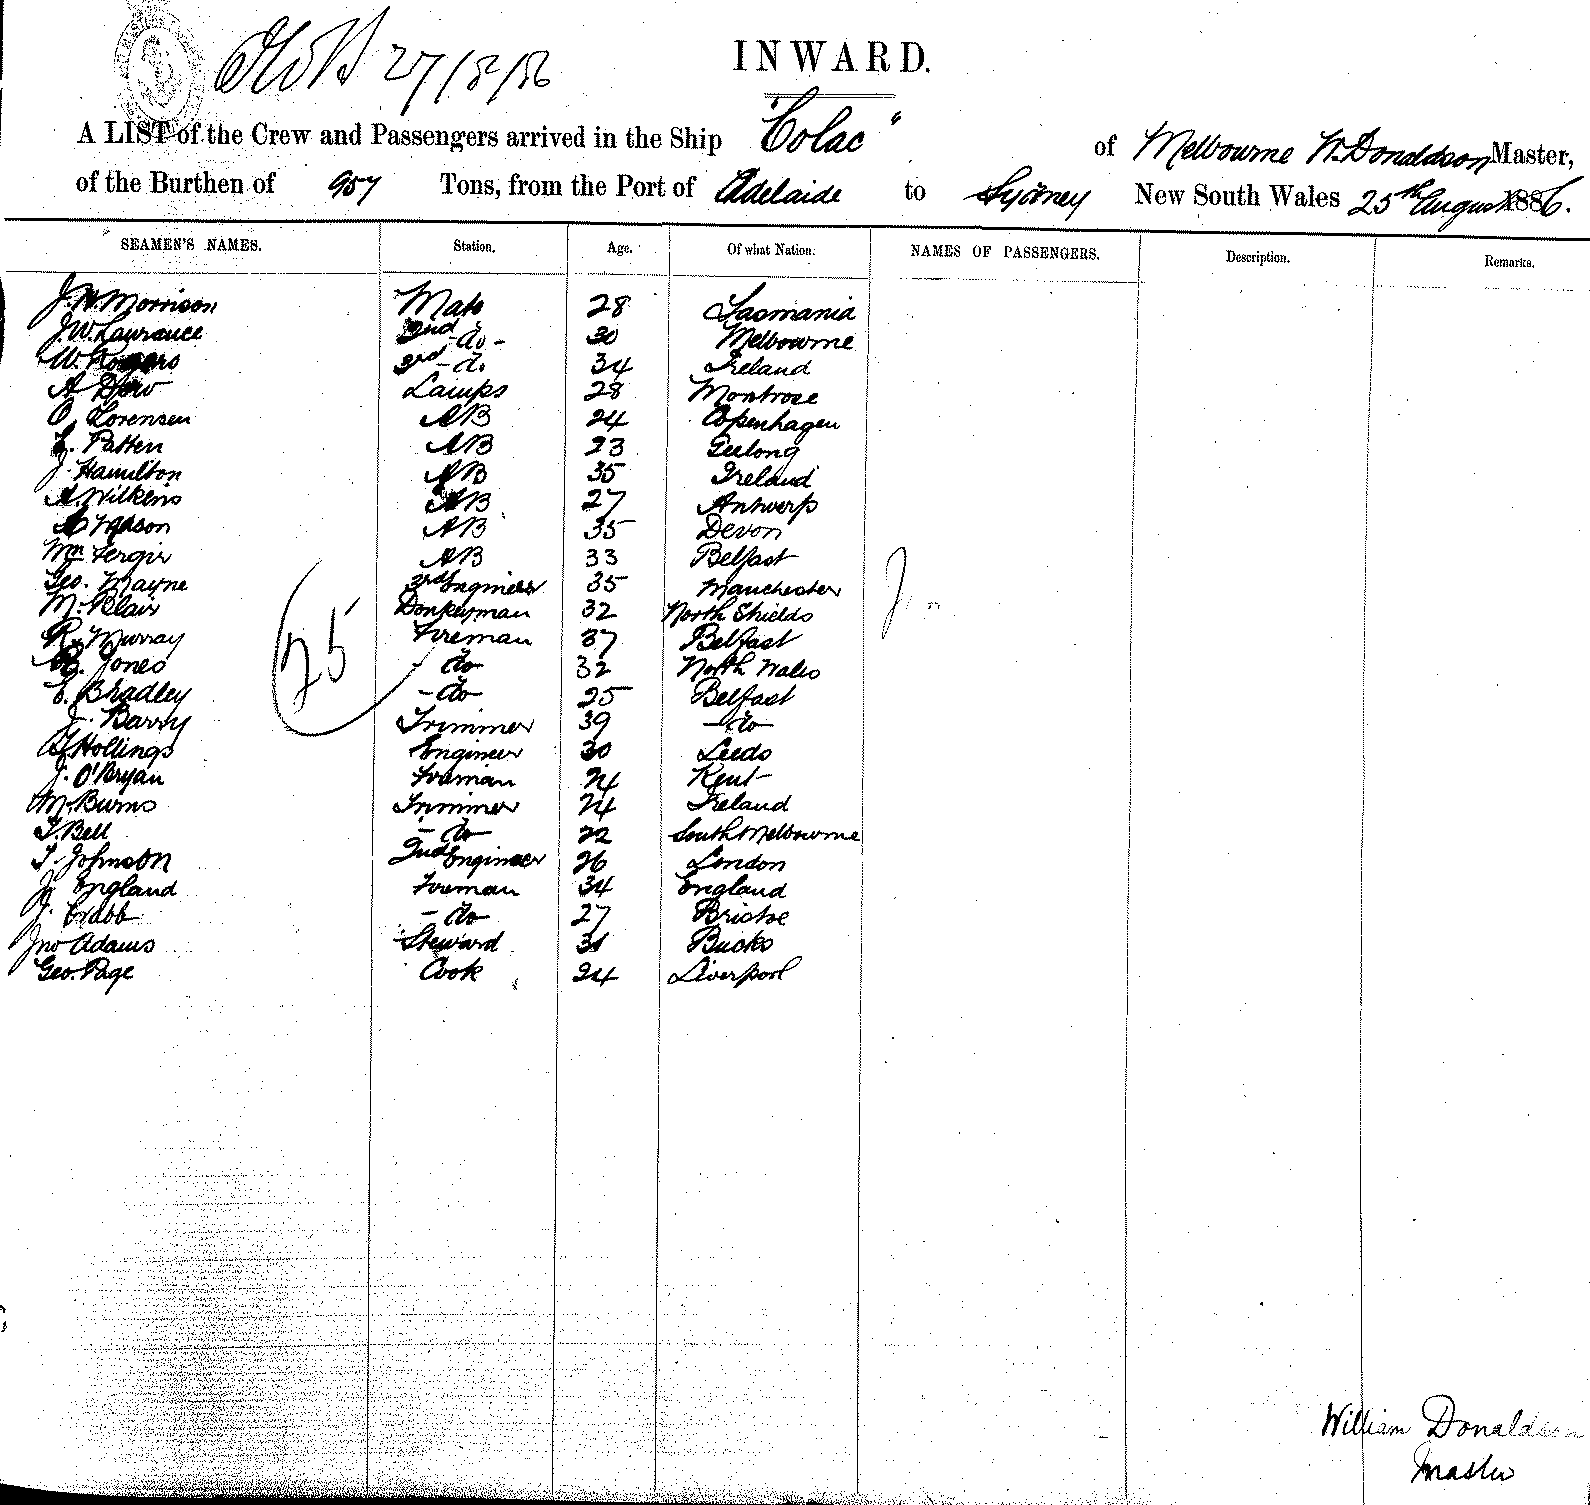 27/8/86
INWARD.
A LIST of the Crew and Passengers arrived in the Ship "Colac" of Melbourne W. Donaldson Master,
of the Burthen of 957 Tons, from the Port of Adelaide to Sydney New South Wales 25th August 1886.
SEAMEN'S NAMES. Station. Age. Of what Nation. NAMES OF PASSENGERS. Description. Remarks.
J. W. Morrison Mate 28 Tasmania
J. W. Laurance 2nd - do - 30 Melbourne
W. Rogers 3rd - do 34 Ireland
A Dew Lamps 28 Montrose
O. Lorensen AB 24 Copenhagen
Patten AB 23 Geelong
J. Hamilton AB 35 Ireland
A. Wilkens AB 27 Antwerp
Mason AB 35 Devon
Wm Fergir AB 33 Belfast
Geo. Mayne 3rd Engineer 35 Manchester
M. Blair Donkeyman 32 North Shields
R. Murray Fireman 37 Belfast
Jones do 32 North Wales
E. Bradley - do 25 Belfast
J. Barry Trimmer 39 - do
Hollings Engineer 30 Leeds
J. O'Bryan Foreman 24 Kent
M. Burns Trimmer 24 Ireland
T. Bell - do 22 South Melbourne
T. Johnson 2nd Engineer 26 London
J. England Foreman 34 England
J. Crabb - do 27 Bristol
Jno Adams Steward 31 Bucks
Geo. Page Cook 24 Liverpool
25
William Donaldson
Master